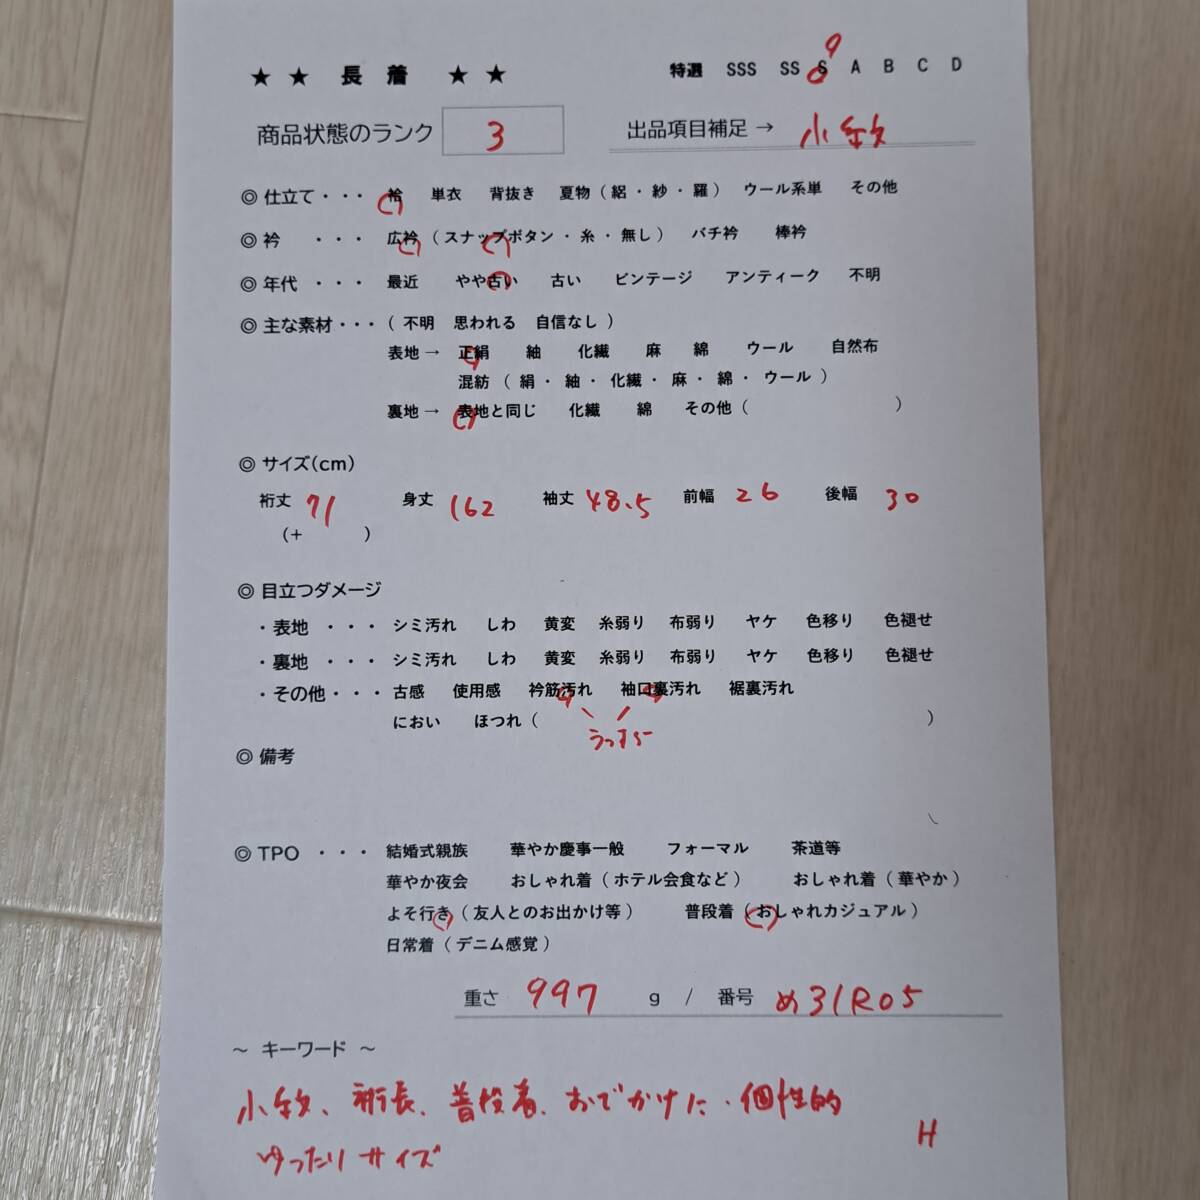 ★ ★ 長 着 ★ ★ 特選 SSS SS S A B C D
商品状態のランク 3 出品項目補足 → 小紋
◎ 仕立て ・・・ 袷 単衣 背抜き 夏物 ( 絽 ・ 紗 ・ 羅 ) ウール系単 その他
◎ 衿 ・・・ 広衿 ( スナップボタン ・ 糸 ・ 無し ) バチ衿 棒衿
◎ 年代 ・・・ 最近 やや古い 古い ビンテージ アンティーク 不明
◎ 主な素材・・・ ( 不明 思われる 自信なし )
表地 → 正絹 紬 化繊 麻 綿 ウール 自然布
混紡 ( 絹 ・ 紬 ・ 化繊 ・ 麻 ・ 綿 ・ ウール )
裏地 → 表地と同じ 化繊 綿 その他 ( )
◎ サイズ(cm)
裄丈 71 身丈 162 袖丈 48.5 前幅 26 後幅 30
(+ )
◎ 目立つダメージ
・表地 ・・・ シミ汚れ しわ 黄変 糸弱り 布弱り ヤケ 色移り 色褪せ
・裏地 ・・・ シミ汚れ しわ 黄変 糸弱り 布弱り ヤケ 色移り 色褪せ
・その他・・・ 古感 使用感 衿筋汚れ 袖口裏汚れ 裾裏汚れ
におい ほつれ ( )
うっすら
◎ 備考
◎ TPO ・・・ 結婚式親族 華やか慶事一般 フォーマル 茶道等
華やか夜会 おしゃれ着 ( ホテル会食など ) おしゃれ着 ( 華やか )
よそ行き ( 友人とのお出かけ等 ) 普段着 ( おしゃれカジュアル )
日常着 ( デニム感覚 )
重さ 997 g / 番号 め31R05
～ キーワード ～
小紋、裄長、普段着、おでかけに、個性的
ゆったりサイズ H